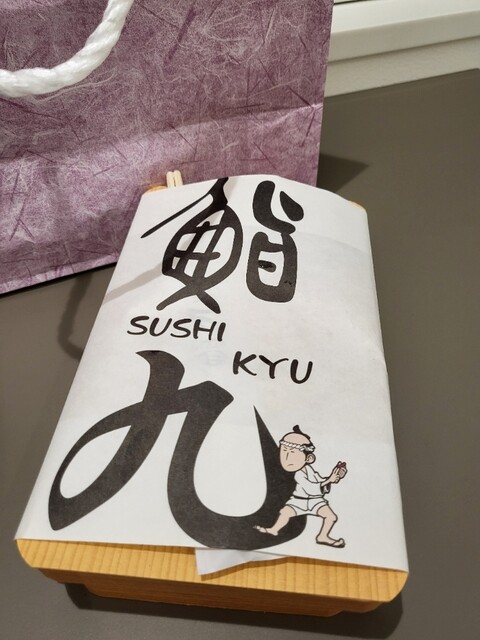 鮨
SUSHI
KYU
九